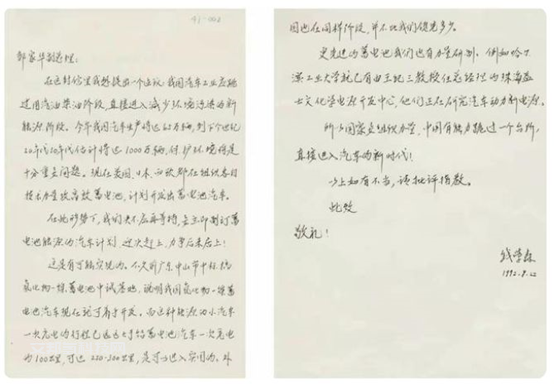 91-002
邹家华副总理：
在这封信里我想提出一个建议：我国汽车工业应跳
过用汽油柴油阶段，直接进入减少环境污染的新
能源阶段。今年我国汽车生产将达62万辆，到下个世纪
20年代30年代估计将达1000万辆，保护环境将是
十分重大问题。现在美国、日本、西欧都在组织各自
技术力量攻高效蓄电池，计划开发出蓄电池汽车。
在此形势下，我们决不应再等待，要立即制订蓄
电池能源的汽车计划，迎头赶上，力争后来居上！
这是有可能实现的。不久前广东中山市中
氢化物-镍蓄电池中试基地，说明我国氢化物-镍蓄
电池汽车现在就可着手开发。而这种能源的小汽车
一次充电的行程已远大于铅蓄电池汽车一次充电
的100公里，可达220-300公里，是可以进入实用的。外
国也在同样阶段，并不比我们领先多少。
更先进的蓄电池我们也有力量研制。例如哈尔
滨工业大学就已有由王纪三教授任总经理的珠海益
士文化学电源开发中心，他们正在研究汽车动力新电源。
所以国家要组织力量，中国有能力跳过一个台阶，
直接进入汽车的新时代！
以上如有不当，请批评指教。
此致
敬礼！
钱学森
1992.8.22